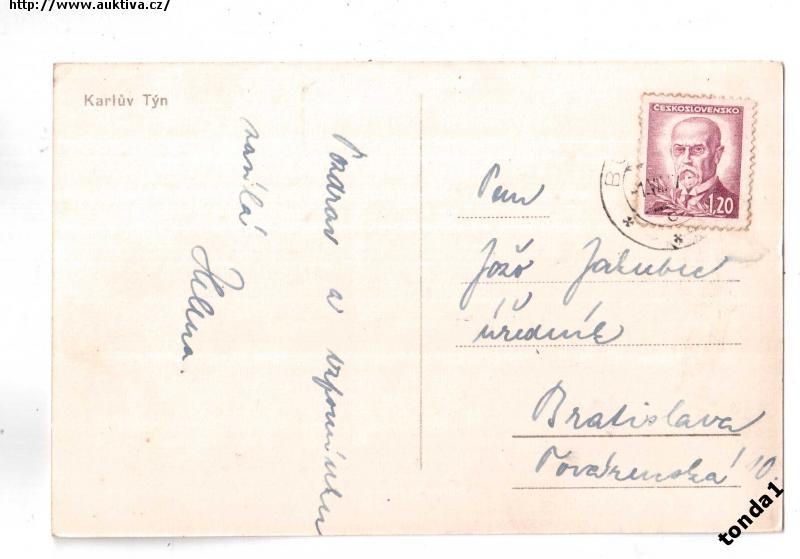 http://www.auktiva.cz/
Karlův Týn
Pozdrav a vzpomínku
zasílá
Helena.
ČESKOSLOVENSKO
1.20
Pan
Jožo Jakubec
úředník
Bratislava
Považenská 10.
tonda1